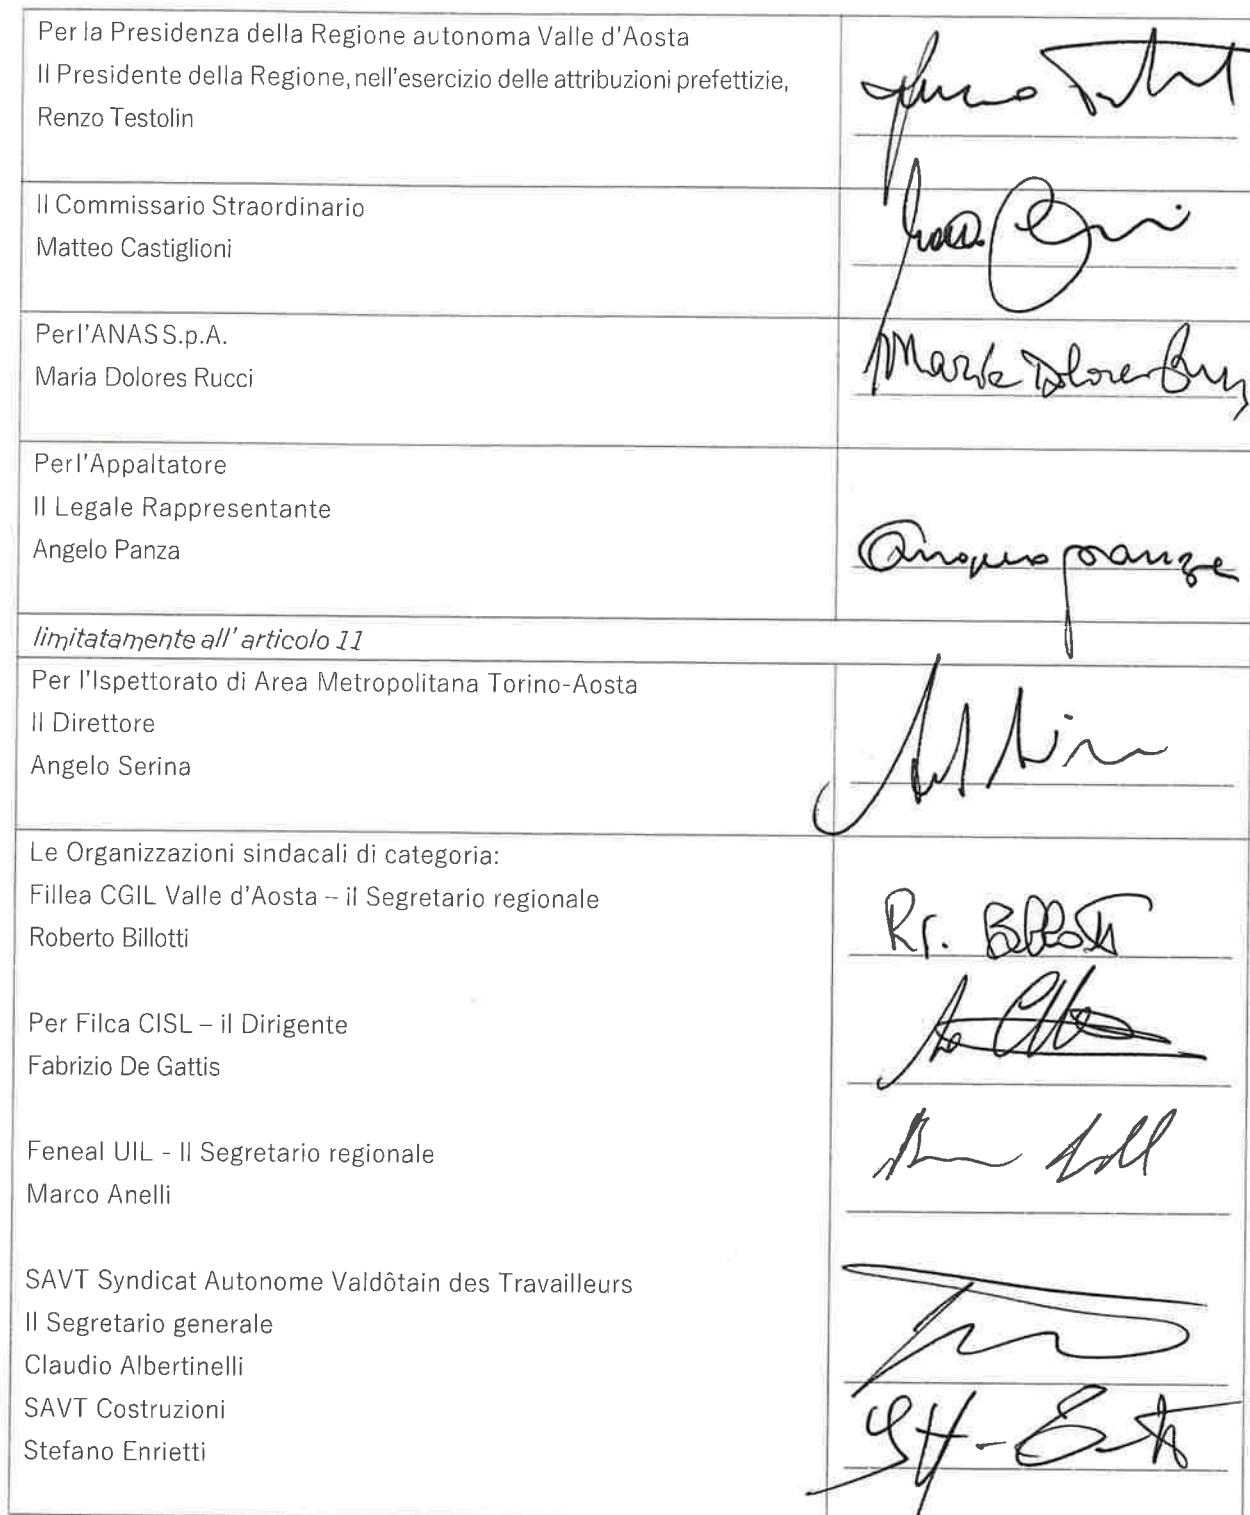 Per la Presidenza della Regione autonoma Valle d'Aosta
Il Presidente della Regione, nell'esercizio delle attribuzioni prefettizie,
Renzo Testolin
Il Commissario Straordinario
Matteo Castiglioni
Per l'ANAS S.p.A.
Maria Dolores Rucci
Maria Dolores Rucci
Per l'Appaltatore
Il Legale Rappresentante
Angelo Panza
Angelo Panza
limitatamente all'articolo 11
Per l'Ispettorato di Area Metropolitana Torino-Aosta
Il Direttore
Angelo Serina
Le Organizzazioni sindacali di categoria:
Fillea CGIL Valle d'Aosta – il Segretario regionale
Roberto Billotti
Billotti
Per Filca CISL – il Dirigente
Fabrizio De Gattis
Feneal UIL - Il Segretario regionale
Marco Anelli
SAVT Syndicat Autonome Valdôtain des Travailleurs
Il Segretario generale
Claudio Albertinelli
SAVT Costruzioni
Stefano Enrietti